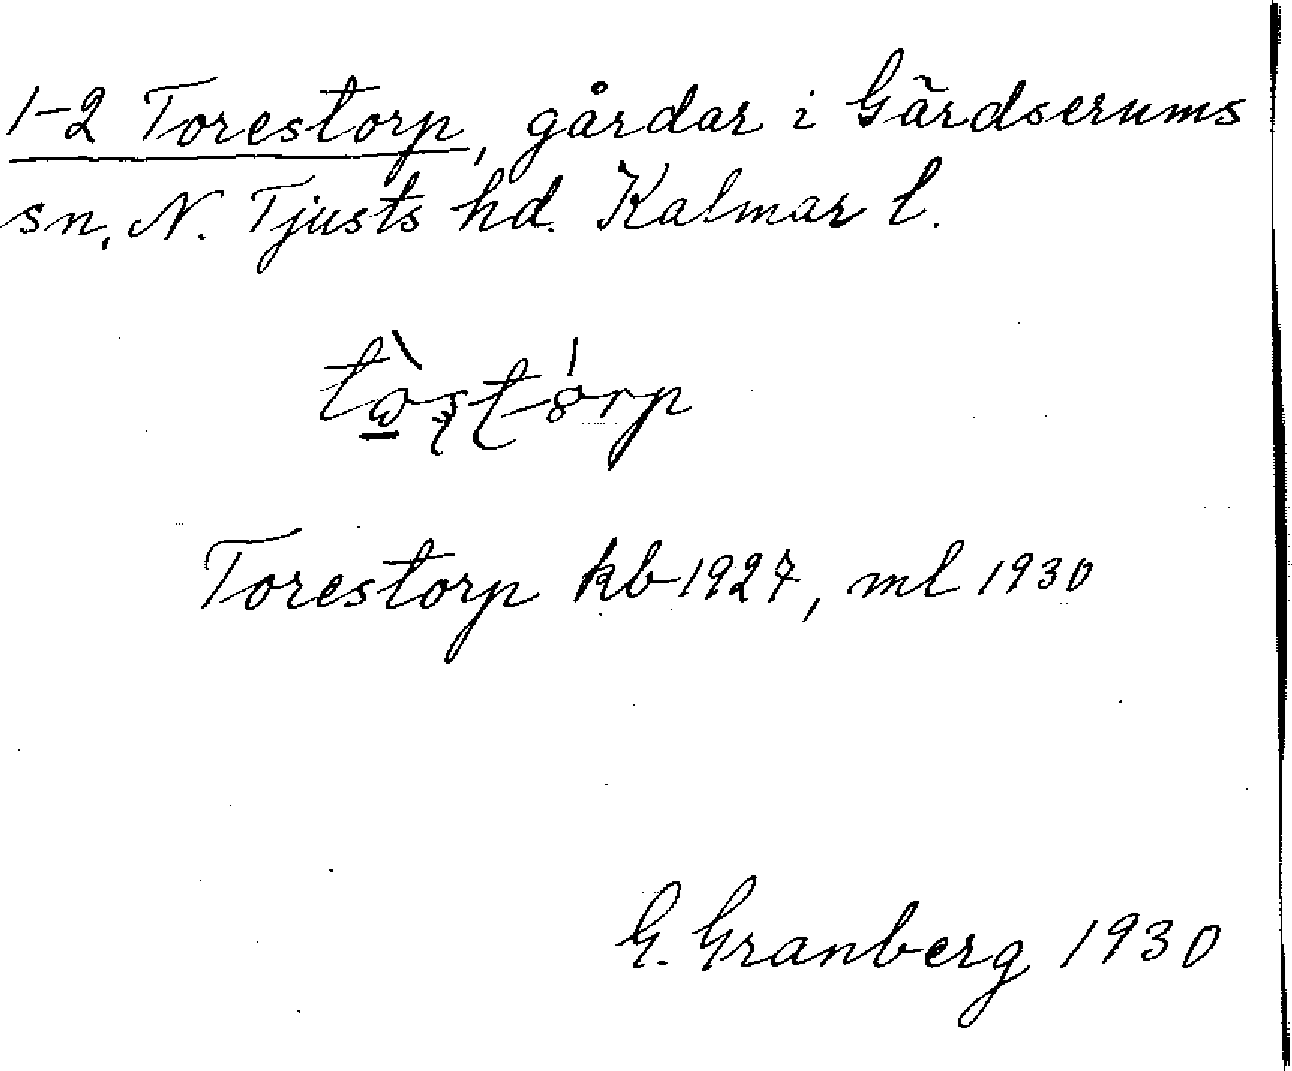 1-2 Torestorp, gårdar i Gärdserums
sn, N. Tjusts hd. Kalmar l.
Torestorp kb 1927, ml 1930
G. Granberg 1930